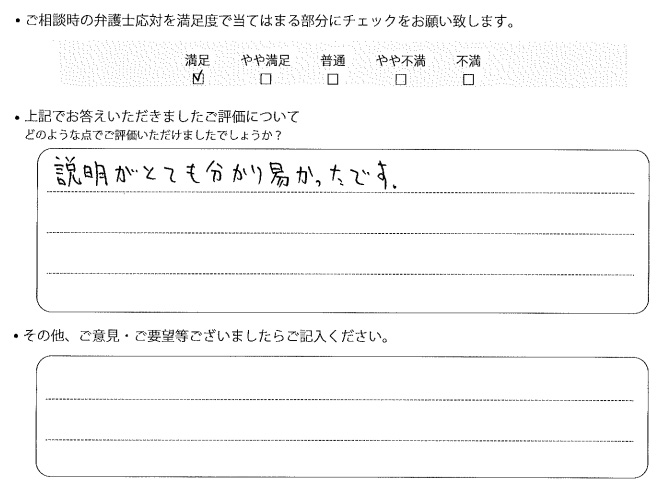 ・ご相談時の弁護士応対を満足度で当てはまる部分にチェックをお願い致します。
満足 やや満足 普通 やや不満 不満
☑ □ □ □ □
・上記でお答えいただきましたご評価について
どのような点でご評価いただけましたでしょうか？
説明がとても分かり易かったです.
・その他、ご意見・ご要望等ございましたらご記入ください。